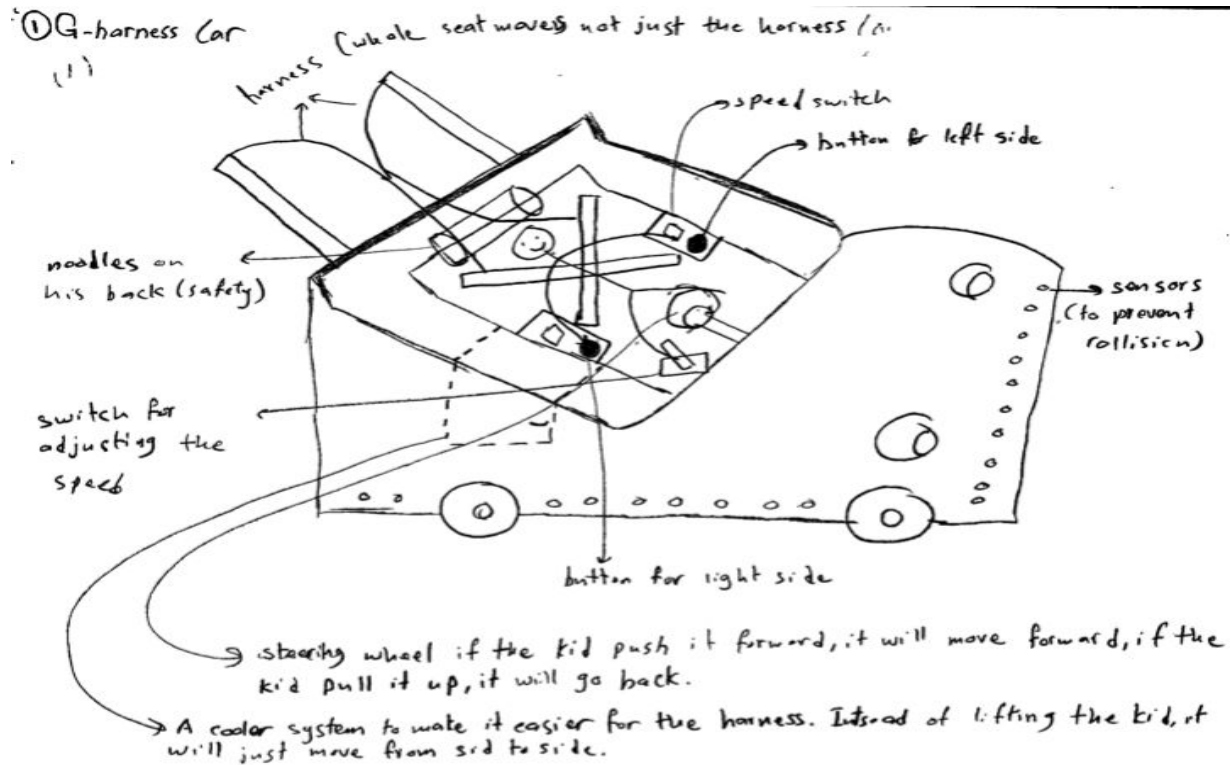 ① G-harness Car
(1)
harness (whole seat moves not just the harness
speed switch
button for left side
noodles on
his back (safety)
sensors
(to prevent
collision)
switch for
adjusting the
speed
button for right side
steering wheel if the kid push it forward, it will move forward, if the
kid pull it up, it will go back.
A cooler system to make it easier for the harness. Intsead of lifting the kid, it
will just move from sid to side.